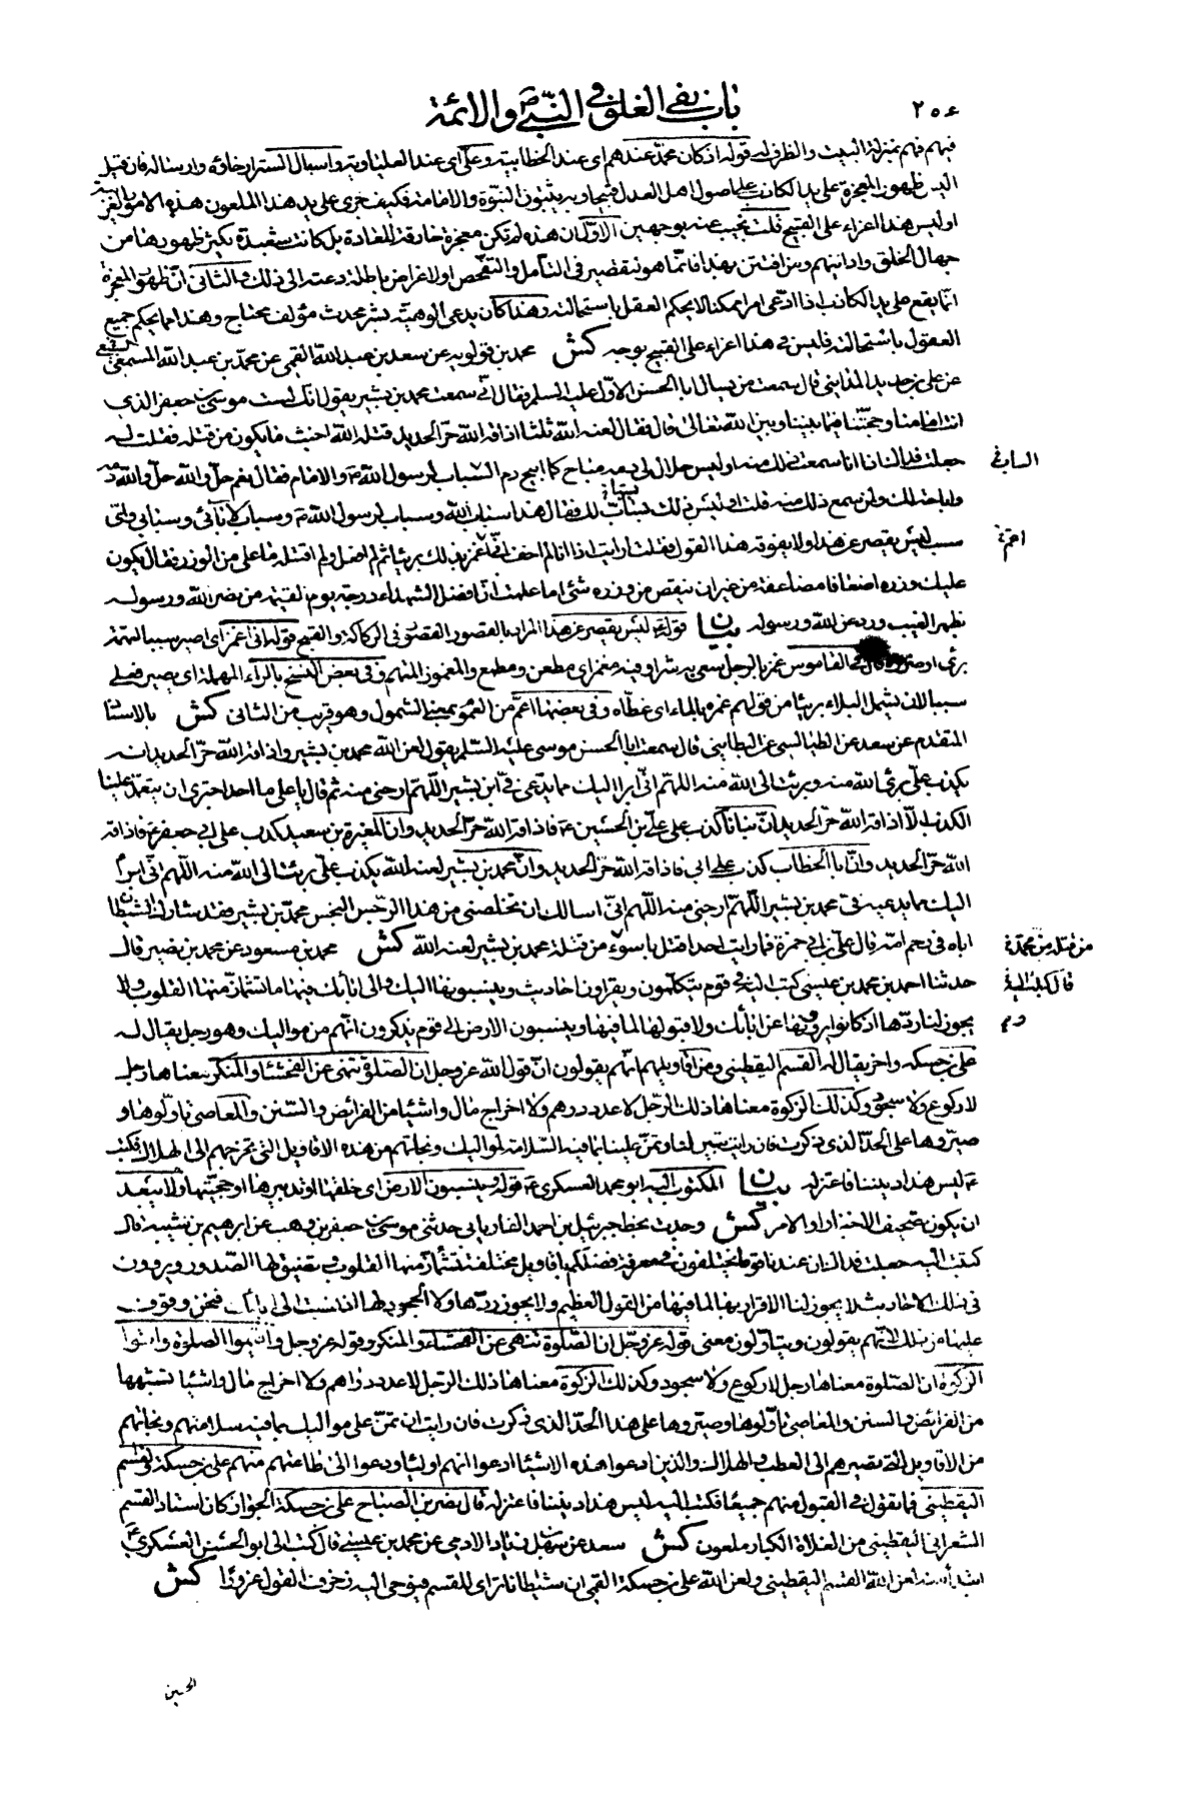 ٢٥٤
باب نفي الغلو في النبي ص والائمة
فيهم فهم بمنزلة البيت والظرف له قوله اذ كان محمد عندهم اي عند الخطابية وعلي اي عند العلياوية واسبال الستر ارخاؤه وارساله فان قيل
اليس ظهور المعجزة على يد الكاذب على اصول اهل العدل قبيحا وبه يثبتون النبوة والامامة فكيف جرى على يد هذا الملعون هذه الامور الغريبة
اوليس هذا اغراء على القبيح قلت نجيب عنه بوجهين الاول ان هذه لم تكن معجزة خارقة للعادة بل كانت شعبذة يكثر ظهورها من
جهال الخلق وادانيهم ومن افتتن بهذا فانما هو لتقصير في التأمل والتفحص او لاغراض باطلة دعته الى ذلك والثاني ان ظهور المعجزة
انما يقبح على يد الكاذب اذا ادعى امرا ممكنا لا يحكم العقل باستحالته وهذا كان يدعي الوهية بشر محدث مؤلف محتاج وهذا مما يحكم جميع
العقول باستحالته فليس في هذا اغراء على القبيح بوجه كش محمد بن قولويه عن سعد بن عبد الله القمي عن محمد بن عبد الله المسمعي
عن علي بن حديد المدايني قال سمعت من يسال ابا الحسن الاول عليه السلم فقال اني سمعت محمد بن بشير يقول انك لست موسى بن جعفر الذي
انت امامنا وحجتنا فيما بيننا وبين الله تعالى قال فقال لعنه الله ثلثا اذاقه الله حر الحديد قتله الله اخبث ما يكون من قتله فقلت له
جعلت فداك اذا انا سمعت ذلك منه اوليس حلال لي دمه مباح كما ابيح دم السباب لرسول الله ص والامام فقال نعم حل والله حل والله دمه
واباحه لك ولمن سمع ذلك منه قلت اوليس ذلك بساب لك فقال هذا ساب لله وساب لرسول الله ص وساب لآبائي وسابي واي
سب ليس يقصر عن هذا ولا يفوقه هذا القول فقلت ارايت اذا انا لم اخف اني اغمز بذلك بريئا ثم لم افعل ولم اقتله ما علي من الوزر فقال يكون
عليك وزره اضعافا مضاعفة من غير ان ينقص من وزره شئ اما علمت ان افضل الشهداء درجة يوم القيمة من نصر الله ورسوله
بظهر الغيب ورد عن الله ورسوله بيان قوله ليس يقصر عن هذا المراد بالقصور القصور في الركاكة والقبح قوله اني اغمز اي اصير سببا لتهمة
برئ او ضرره قال في القاموس غمز بالرجل سعى به شرا وفيه مغمز اي مطعن ومطمع والمغموز المتهم وفي بعض النسخ بالراء المهملة اي يصير فعلي
سببا لان يشمل البلاء بريئا من قولهم غمره الماء اي غطاه وفي بعضها اعم من العموم بمعنى الشمول وهو قريب من الثاني كش بالاسناد
المتقدم عن سعد عن الطيالسي عن البطايني قال سمعت ابا الحسن موسى عليه السلم يقول لعن الله محمد بن بشير واذاقه الله حر الحديد انه
يكذب علي برئ الله منه وبرئت الى الله منه اللهم اني ابرا اليك مما يدعي في ابن بشير اللهم ارحني منه ثم قال يا علي ما احد اجترى ان يتعمد علينا
الكذب الا اذاقه الله حر الحديد ان بنانا كذب على علي بن الحسين ع فاذاقه الله حر الحديد وان المغيرة بن سعيد كذب على ابي جعفر ع فاذاقه
الله حر الحديد وان ابا الخطاب كذب على ابي فاذاقه الله حر الحديد وان محمد بن بشير لعنه الله يكذب علي برئت الى الله منه اللهم اني ابرأ
اليك مما يدعيه في محمد بن بشير اللهم ارحني منه اللهم اني اسالك ان تخلصني من هذا الرجس النجس محمد بن بشير فقد شارك الشيطان
اباه في رحم امه قال علي بن ابي حمزة فما رايت احدا قتل باسوء من قتلة محمد بن بشير لعنه الله كش محمد بن مسعود عن محمد بن نصير قال
حدثنا احمد بن محمد بن عيسى كتب اليه في قوم يتكلمون ويقراون احاديث وينسبونها اليك والى ابائك فيها ما تشمئز منها القلوب ولا
يجوز لنا ردها اذ كانوا يروونها عن ابائك ولا قبولها لما فيها وينسبون الارض الى قوم يذكرون انهم من مواليك وهو رجل يقال له
علي بن حسكة واخر يقال له القسم اليقطيني ومن اقاويلهم انهم يقولون ان قول الله عز وجل ان الصلوة تنهى عن الفحشاء والمنكر معناها رجل
لا ركوع ولا سجود وكذلك الزكوة معناها ذلك الرجل لا عدد درهم ولا اخراج مال واشياء من الفرائض والسنن والمعاصي تاولوها و
صيروها على الحد الذي ذكرت فان رايت تبين لنا وتمن علينا بما فيه السلامة لمواليك ونجاتهم من هذه الاقاويل التي تخرجهم الى الهلاك فكتب
ع ليس هذا ديننا فاعتزله بيان المكتوب اليه ابو محمد العسكري ع قوله وينسبون الارض اي خلقها او تدبيرها او حجيتها ولا يبعد
ان يكون تصحيف الاخبار او الامر كش وجدت بخط جبرئيل بن احمد الفاريابي حدثني موسى بن جعفر بن وهب عن ابرهيم بن شيبة قال
كتبت اليه جعلت فداك ان عندنا قوما يختلفون في معرفة فضلكم باقاويل مختلفة تشمئز منها القلوب وتضيق لها الصدور ويروون
في ذلك الاحاديث لا يجوز لنا الاقرار بها لما فيها من القول العظيم ولا يجوز ردها ولا الجحود لها اذا نسبت الى ابائك فنحن وقوف
عليها من ذلك لانهم يقولون ويتاولون معنى قوله عز وجل ان الصلوة تنهى عن الفحشاء والمنكر وقوله عز وجل واقيموا الصلوة واتوا
الزكوة ان الصلوة معناها رجل لا ركوع ولا سجود وكذلك الزكوة معناها ذلك الرجل لا عدد دراهم ولا اخراج مال واشياء تشبهها
من الفرائض والسنن والمعاصي تاولوها وصيروها على هذا الحد الذي ذكرت فان رايت ان تمن على مواليك بما فيه سلامتهم ونجاتهم
من الاقاويل التي تصيرهم الى العطب والهلاك والذين ادعوا هذه الاشياء ادعوا انهم اولياء ودعوا الى طاعتهم منهم علي بن حسكة والقسم
اليقطيني فما تقول في القبول منهم جميعا فكتب اليه ليس هذا ديننا فاعتزله قال نصر بن الصباح علي بن حسكة الحوار كان استاد القسم
الشعراني اليقطيني من الغلاة الكبار ملعون كش سعد عن سهل بن زياد الادمي عن محمد بن عيسى قال كتب الي ابو الحسن العسكري ع
ابتداء منه لعن الله القسم اليقطيني ولعن الله علي بن حسكة القمي ان شيطانا ترائى للقسم فيوحي اليه زخرف القول غرورا كش
السابقي
اعمر خ
من قتله من محمد خ
قال كتبت اليه خ
الحسين